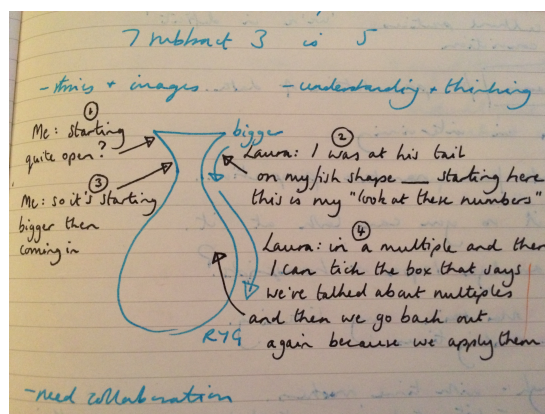 7 subtract 3 is 5
- thics + images
- understanding + thinking
①
Me: starting
quite open?
bigger
②
Laura: I was at his tail
on my fish shape __ starting here
this is my "look at these numbers"
③
Me: so it's starting
bigger then
coming in
④
Laura: in a multiple and then
I can tick the box that says
we've talked about multiples
and then we go back out
again because we apply them
RYG
- need collaboration